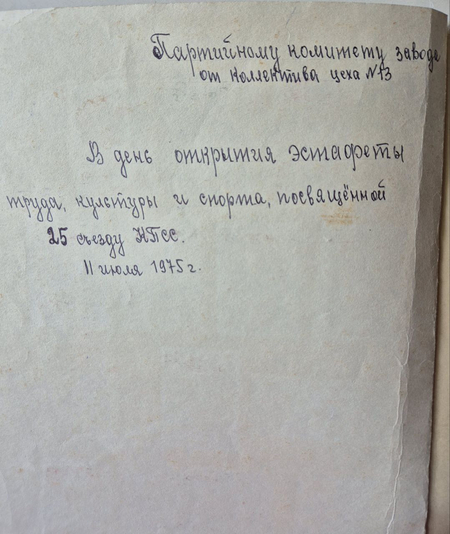 Партийному комитету завода
от коллектива цеха №13
В день открытия эстафеты
труда, культуры и спорта, посвящённой
25 съезду КПСС.
11 июля 1975 г.